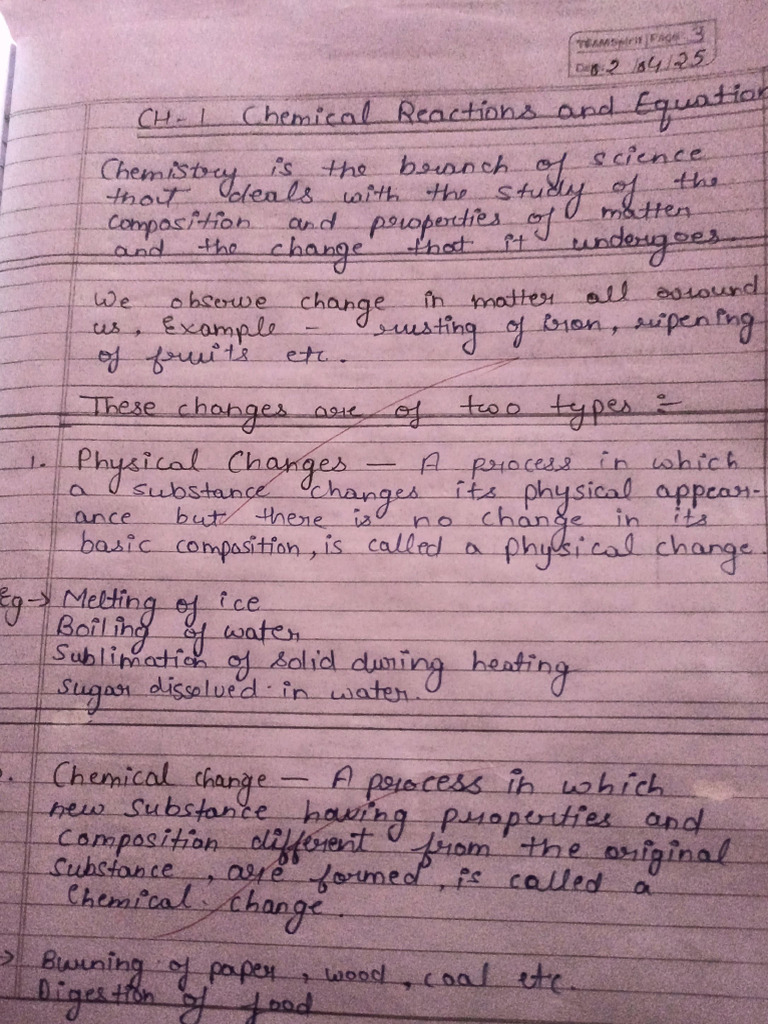 PAGE 3
02/04/25
CH-1 Chemical Reactions and Equation
Chemistry is the branch of science
that deals with the study of the
composition and properties of matter
and the change that it undergoes
We observe change in matter all around
us, Example - rusting of iron, ripening
of fruits etc.
These changes are of two types :-
1. Physical Changes — A process in which
a substance changes its physical appear-
ance but there is no change in its
basic composition, is called a physical change.
Eg → Melting of ice
Boiling of water
Sublimation of solid during heating
Sugar dissolved in water.
Chemical change — A process in which
new substance having properties and
composition different from the original
substance, are formed, is called a
Chemical change.
Burning of paper, wood, coal etc.
Digestion of food